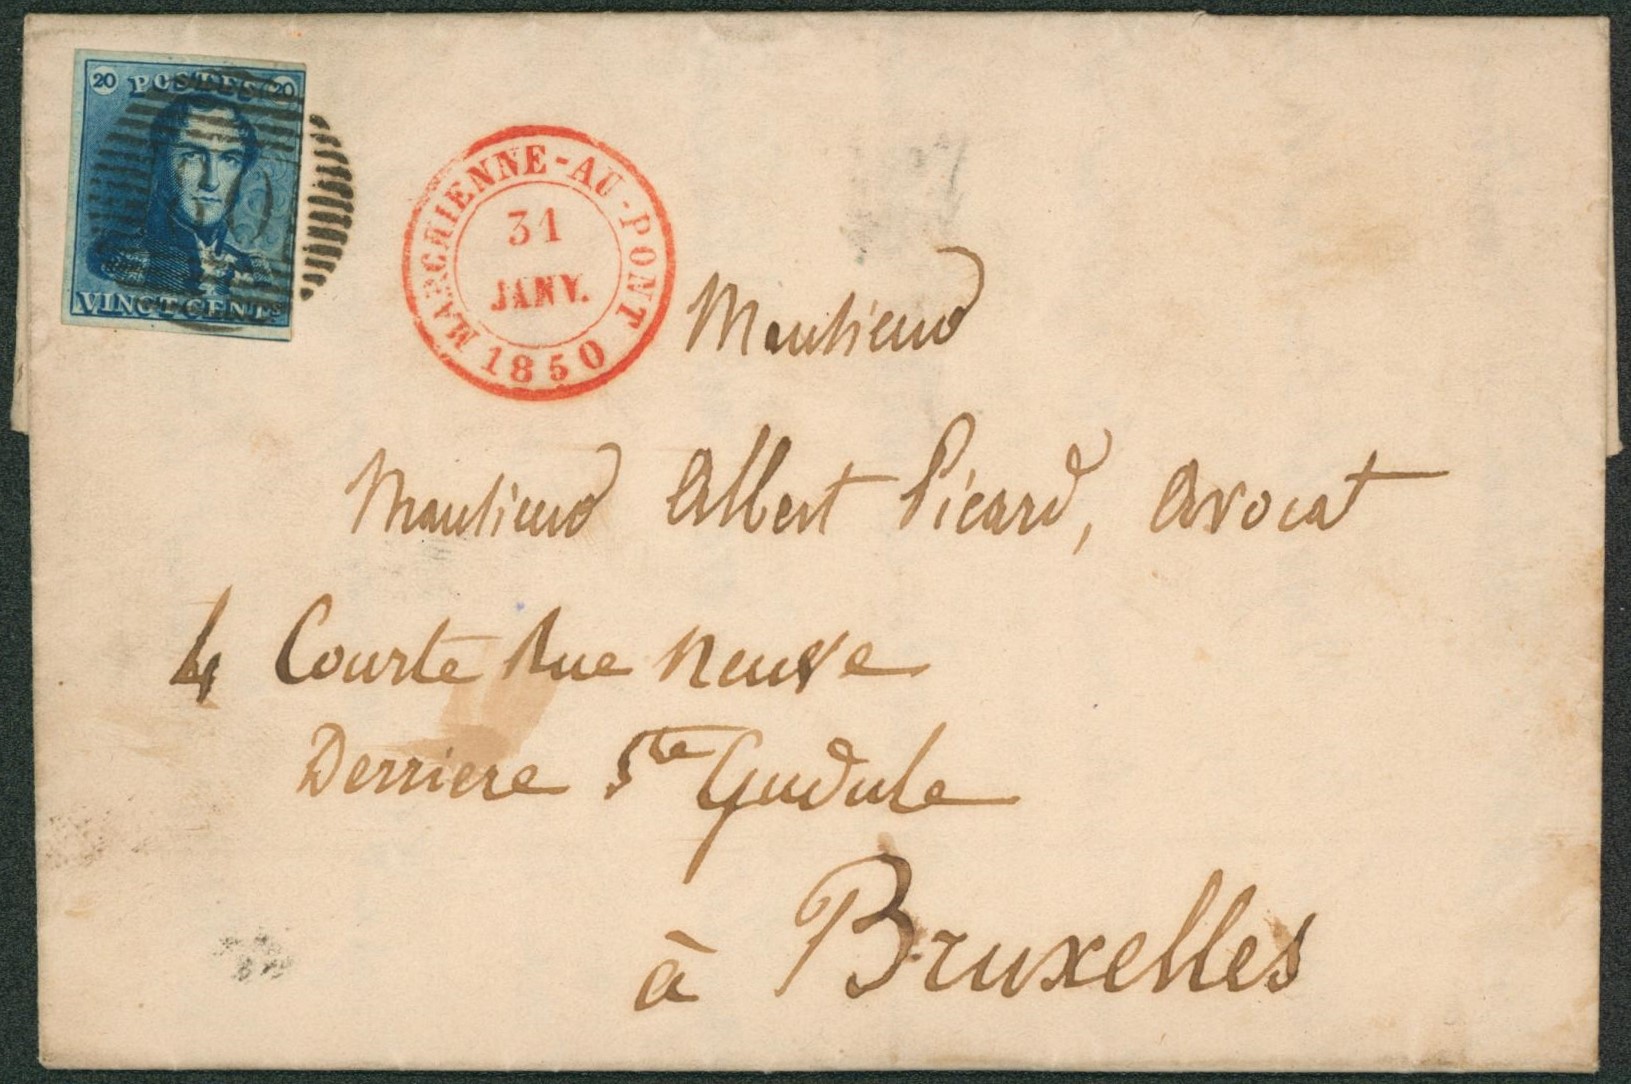 20 POSTES 20
VINGT CENTS
MARCHIENNE-AU-PONT
31
JANV.
1850
Monsieur
Monsieur Albert Picard, Avocat
4 Courte Rue Neuve
Derriere Ste Gudule
à Bruxelles